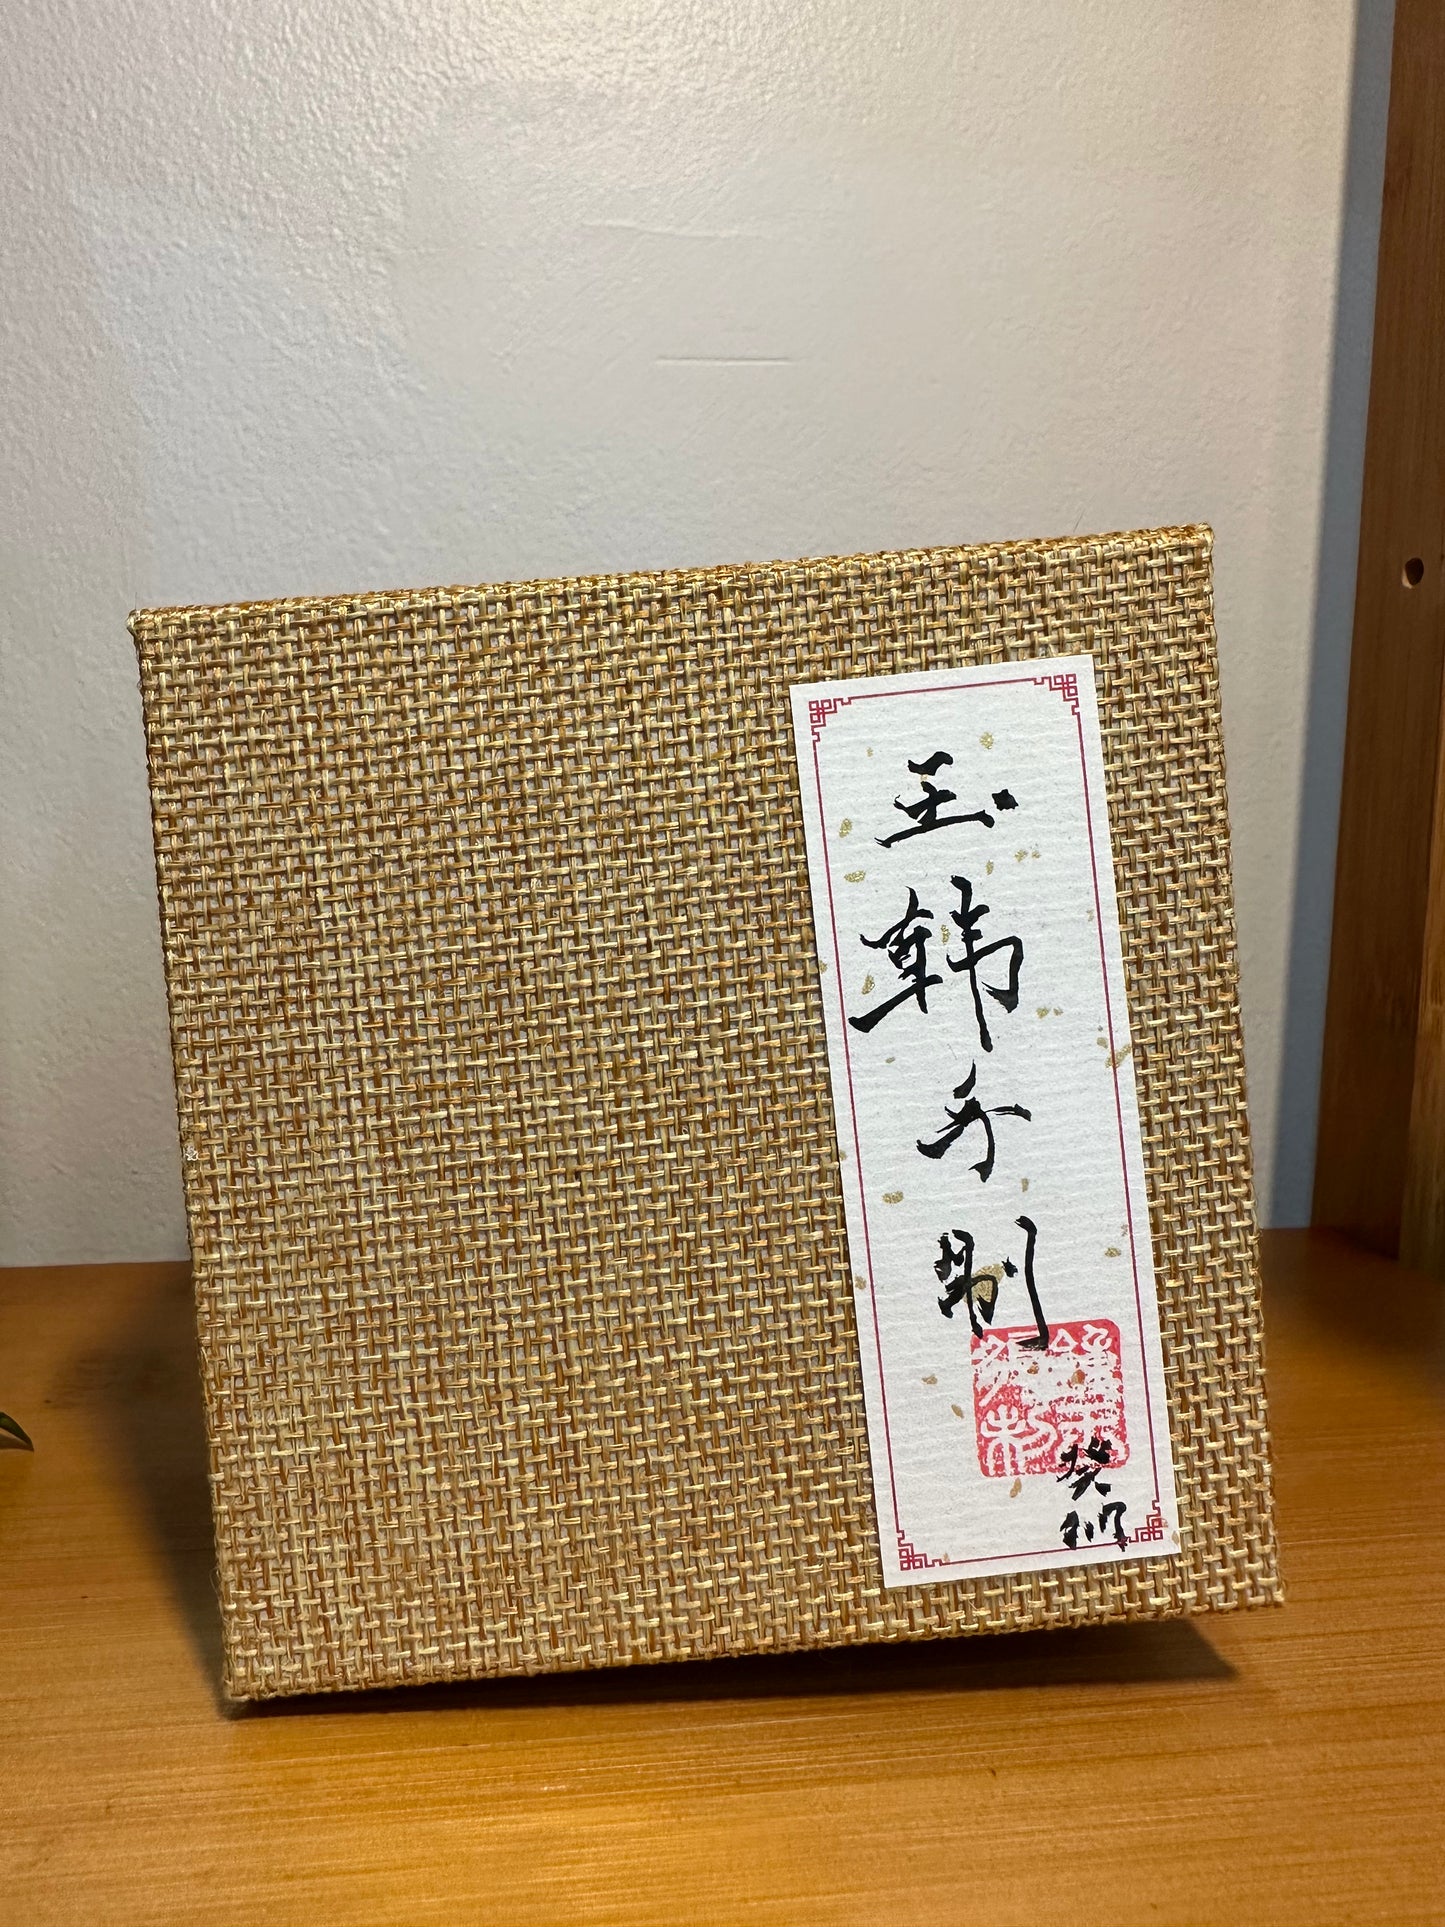 玉韩手制
癸卯